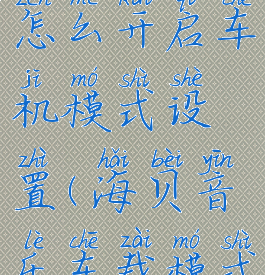 zěn me kāi qǐ chē
怎么开启车
jī mó shì shè
机模式设
zhì hǎi bèi yīn
置(海贝音
lè chē zài mó shì
乐车载模式